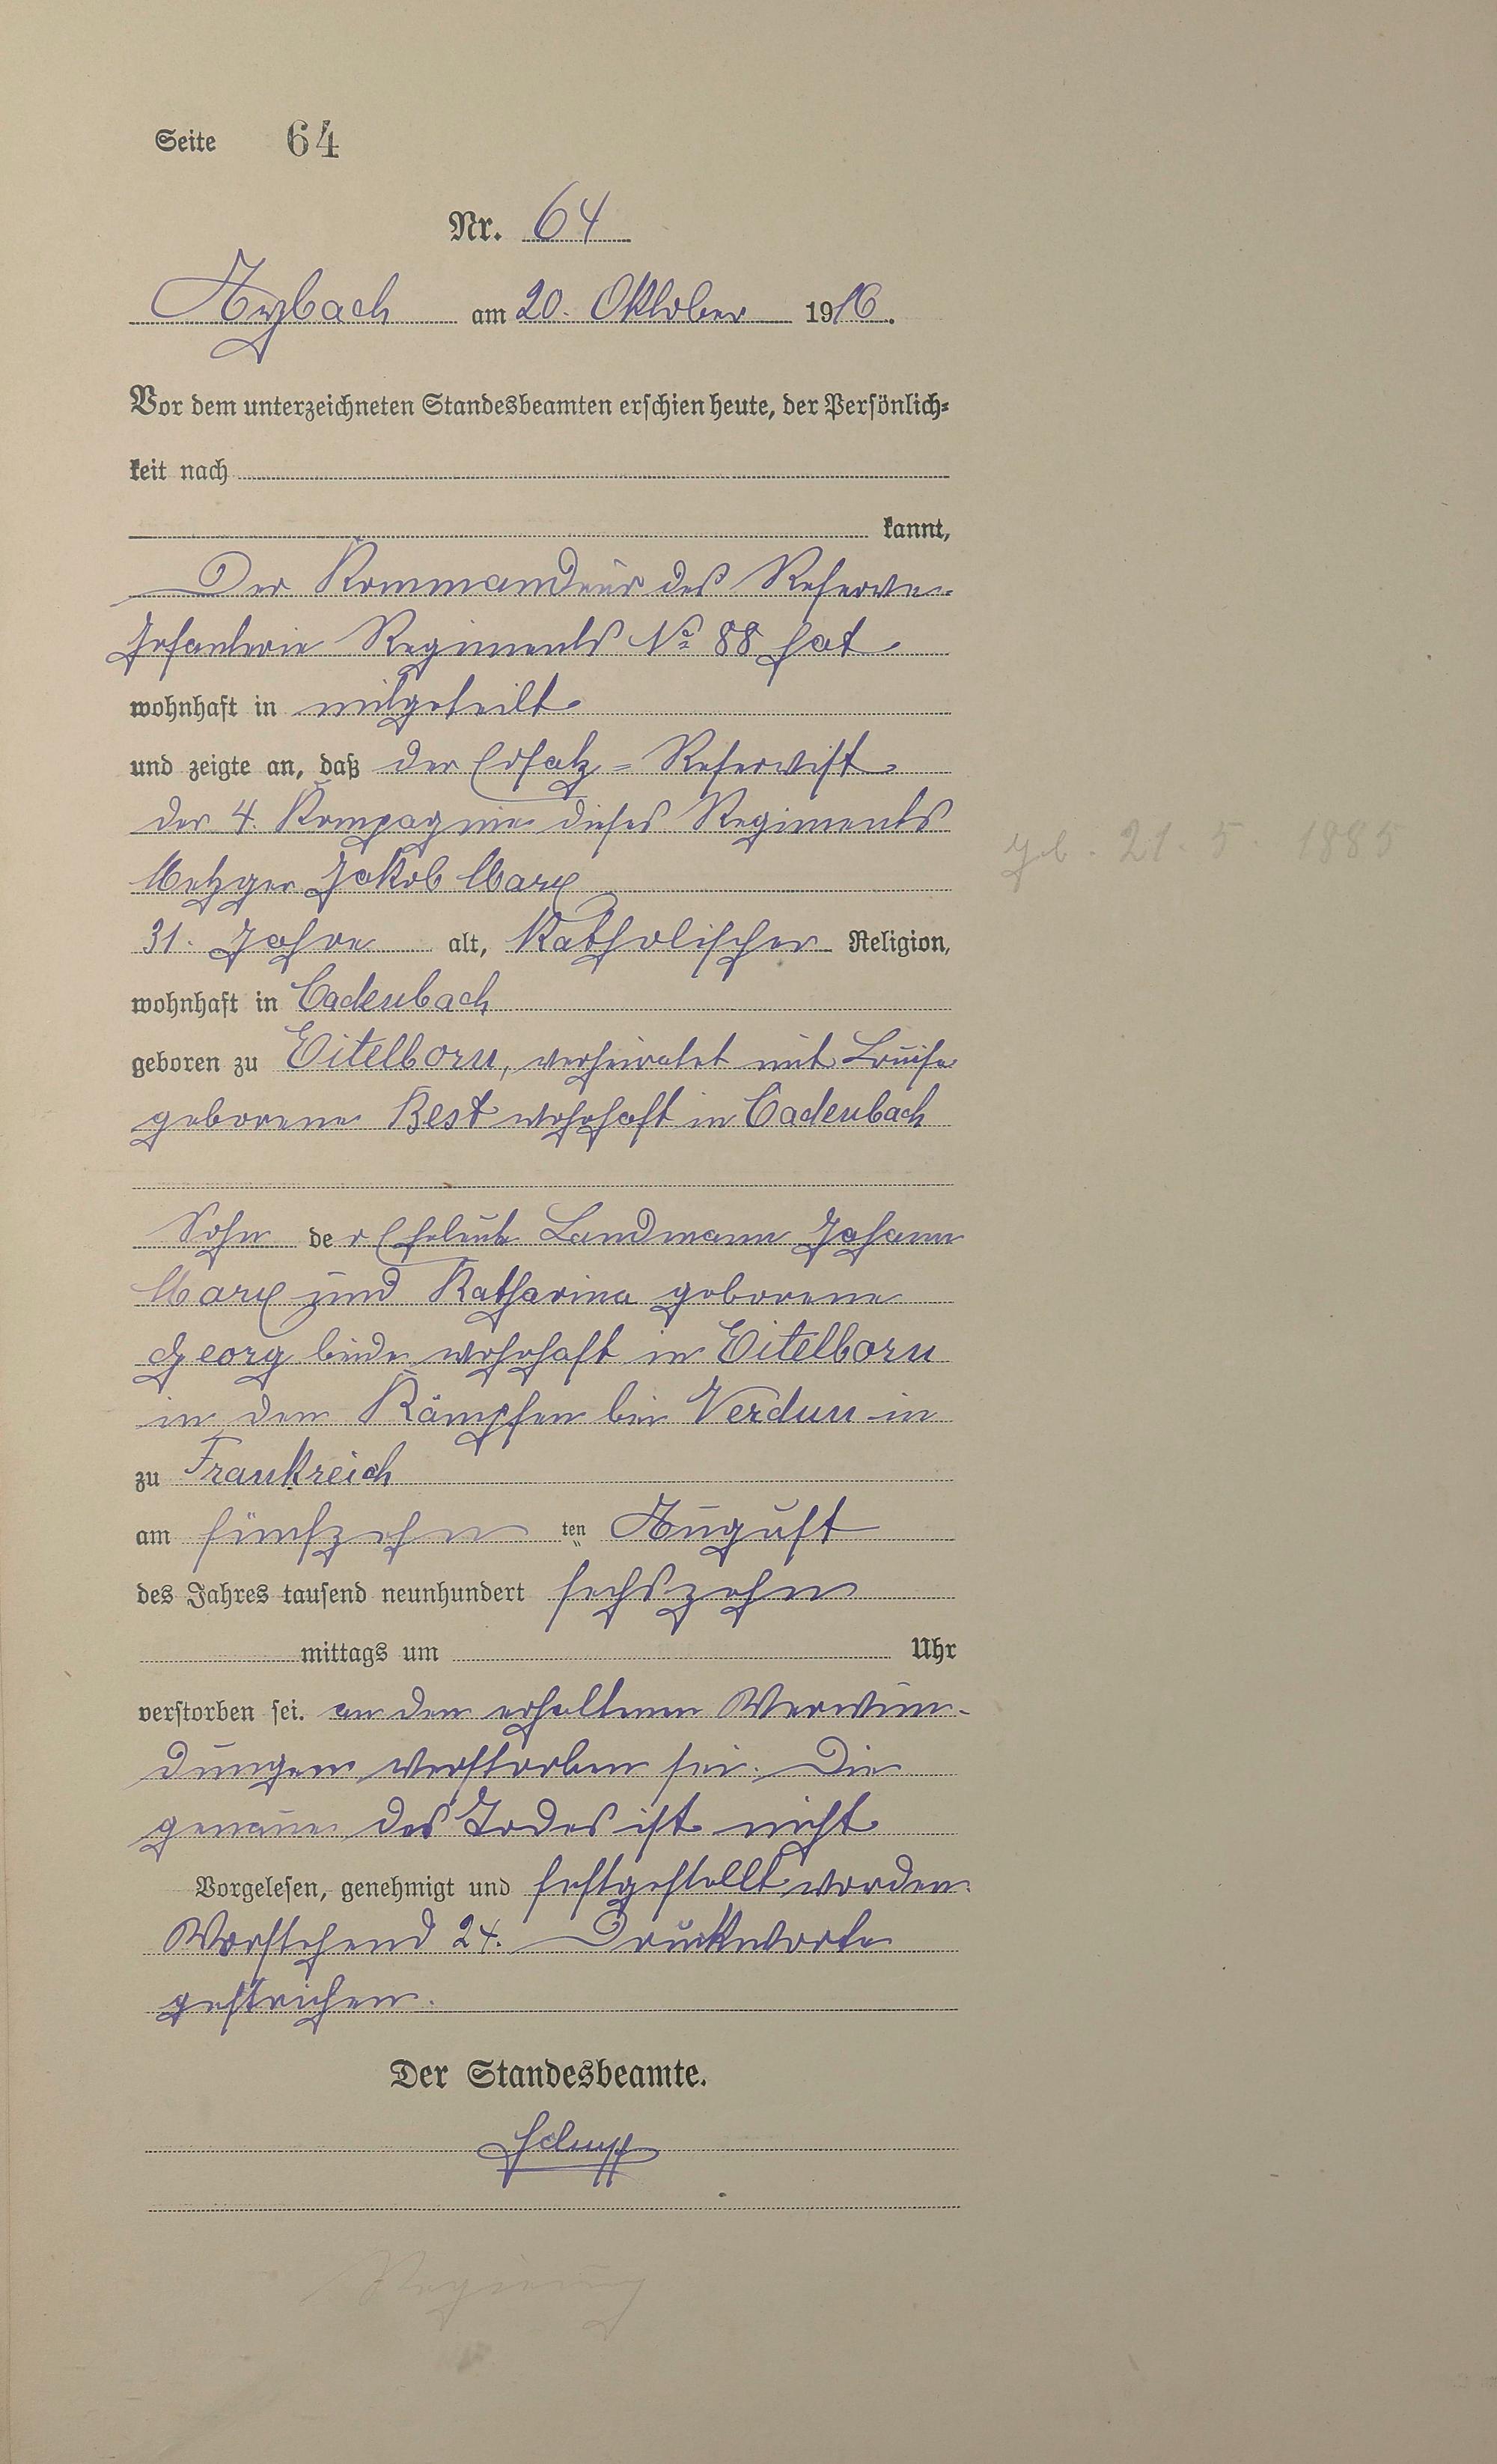 Seite 64
Nr. 64
Arzbach am 20. Oktober 1916.
Vor dem unterzeichneten Standesbeamten erschien heute, der Persönlich-
keit nach
kannt,
Der Kommandeur des Reserve-
Infanterie Regiments No 88 hat
wohnhaft in mitgeteilt
und zeigte an, daß der Ersatz-Reservist
der 4. Kompagnie dieses Regiments
Metzger Jakob Marx
31. Jahre alt, Katholischer Religion,
wohnhaft in Cadenbach
geb. 21. 5. 1885
geboren zu Eitelborn, verheiratet mit Louise
geborene Best wohnhaft in Cadenbach
Sohn der Eheleute Landmann Johann
Marx und Katharina geborene
Georg beide wohnhaft in Eitelborn
in den Kämpfen bei Verdun in
zu Frankreich
am fünfzehn ten August
des Jahres tausend neunhundert sechszehn
mittags um Uhr
verstorben sei. an den erhaltenen Verwun-
dungen verstorben sei. Die
genaue des Todes ist nicht
Vorgelesen, genehmigt und festgestellt worden.
Vorstehend 24. Druckworte
gestrichen.
Der Standesbeamte.
Schupp